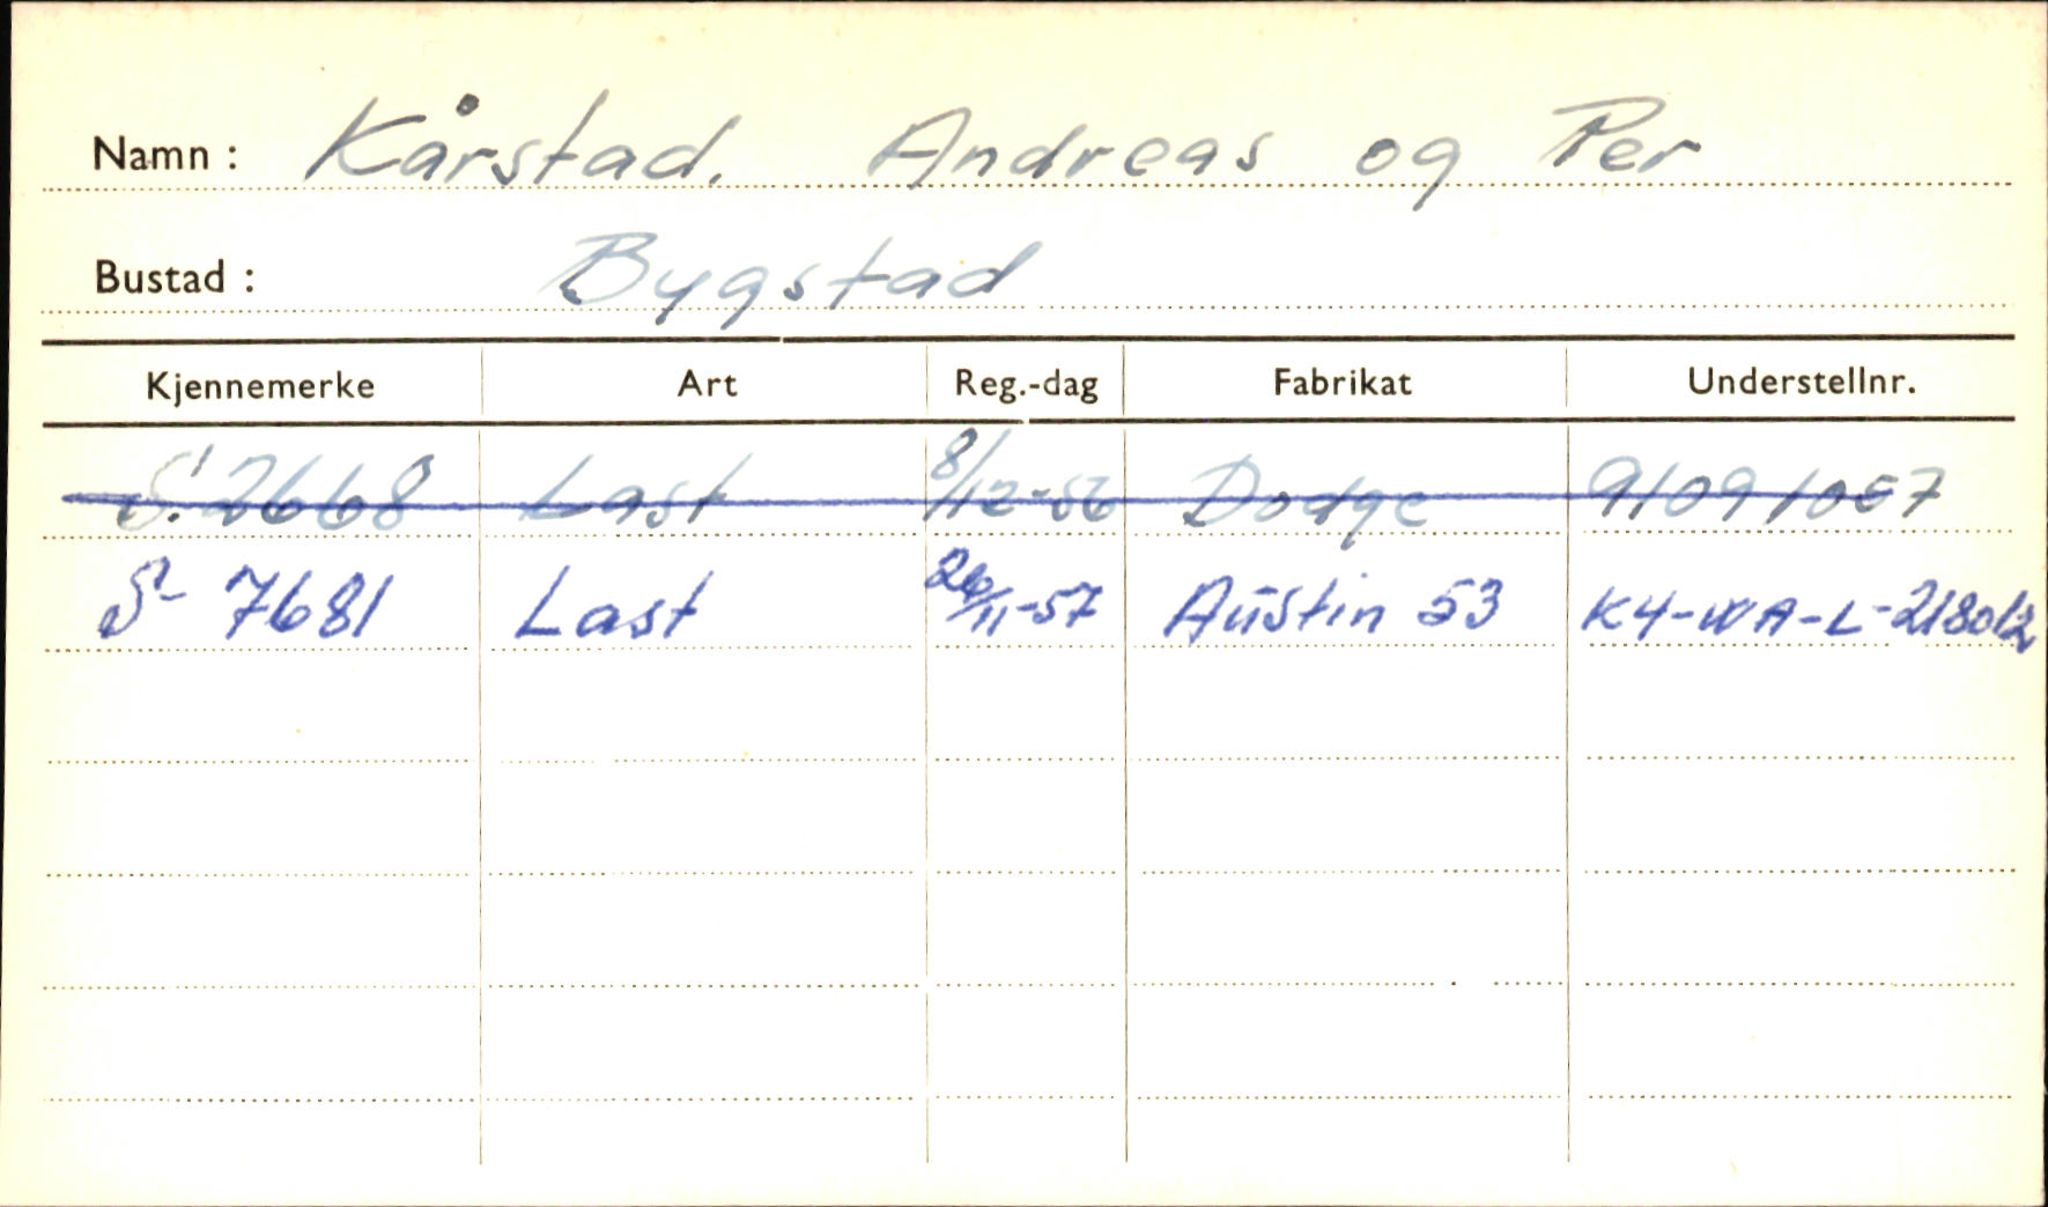 Namn : Kårstad. Andreas og Per
Bustad : Bygstad
Kjennemerke Art Reg.-dag Fabrikat Understellnr.
S. 2668 Last 8/12-56 Dodge 91091057
S- 7681 Last 26/11-57 Austin 53 K4-WA-L-218012